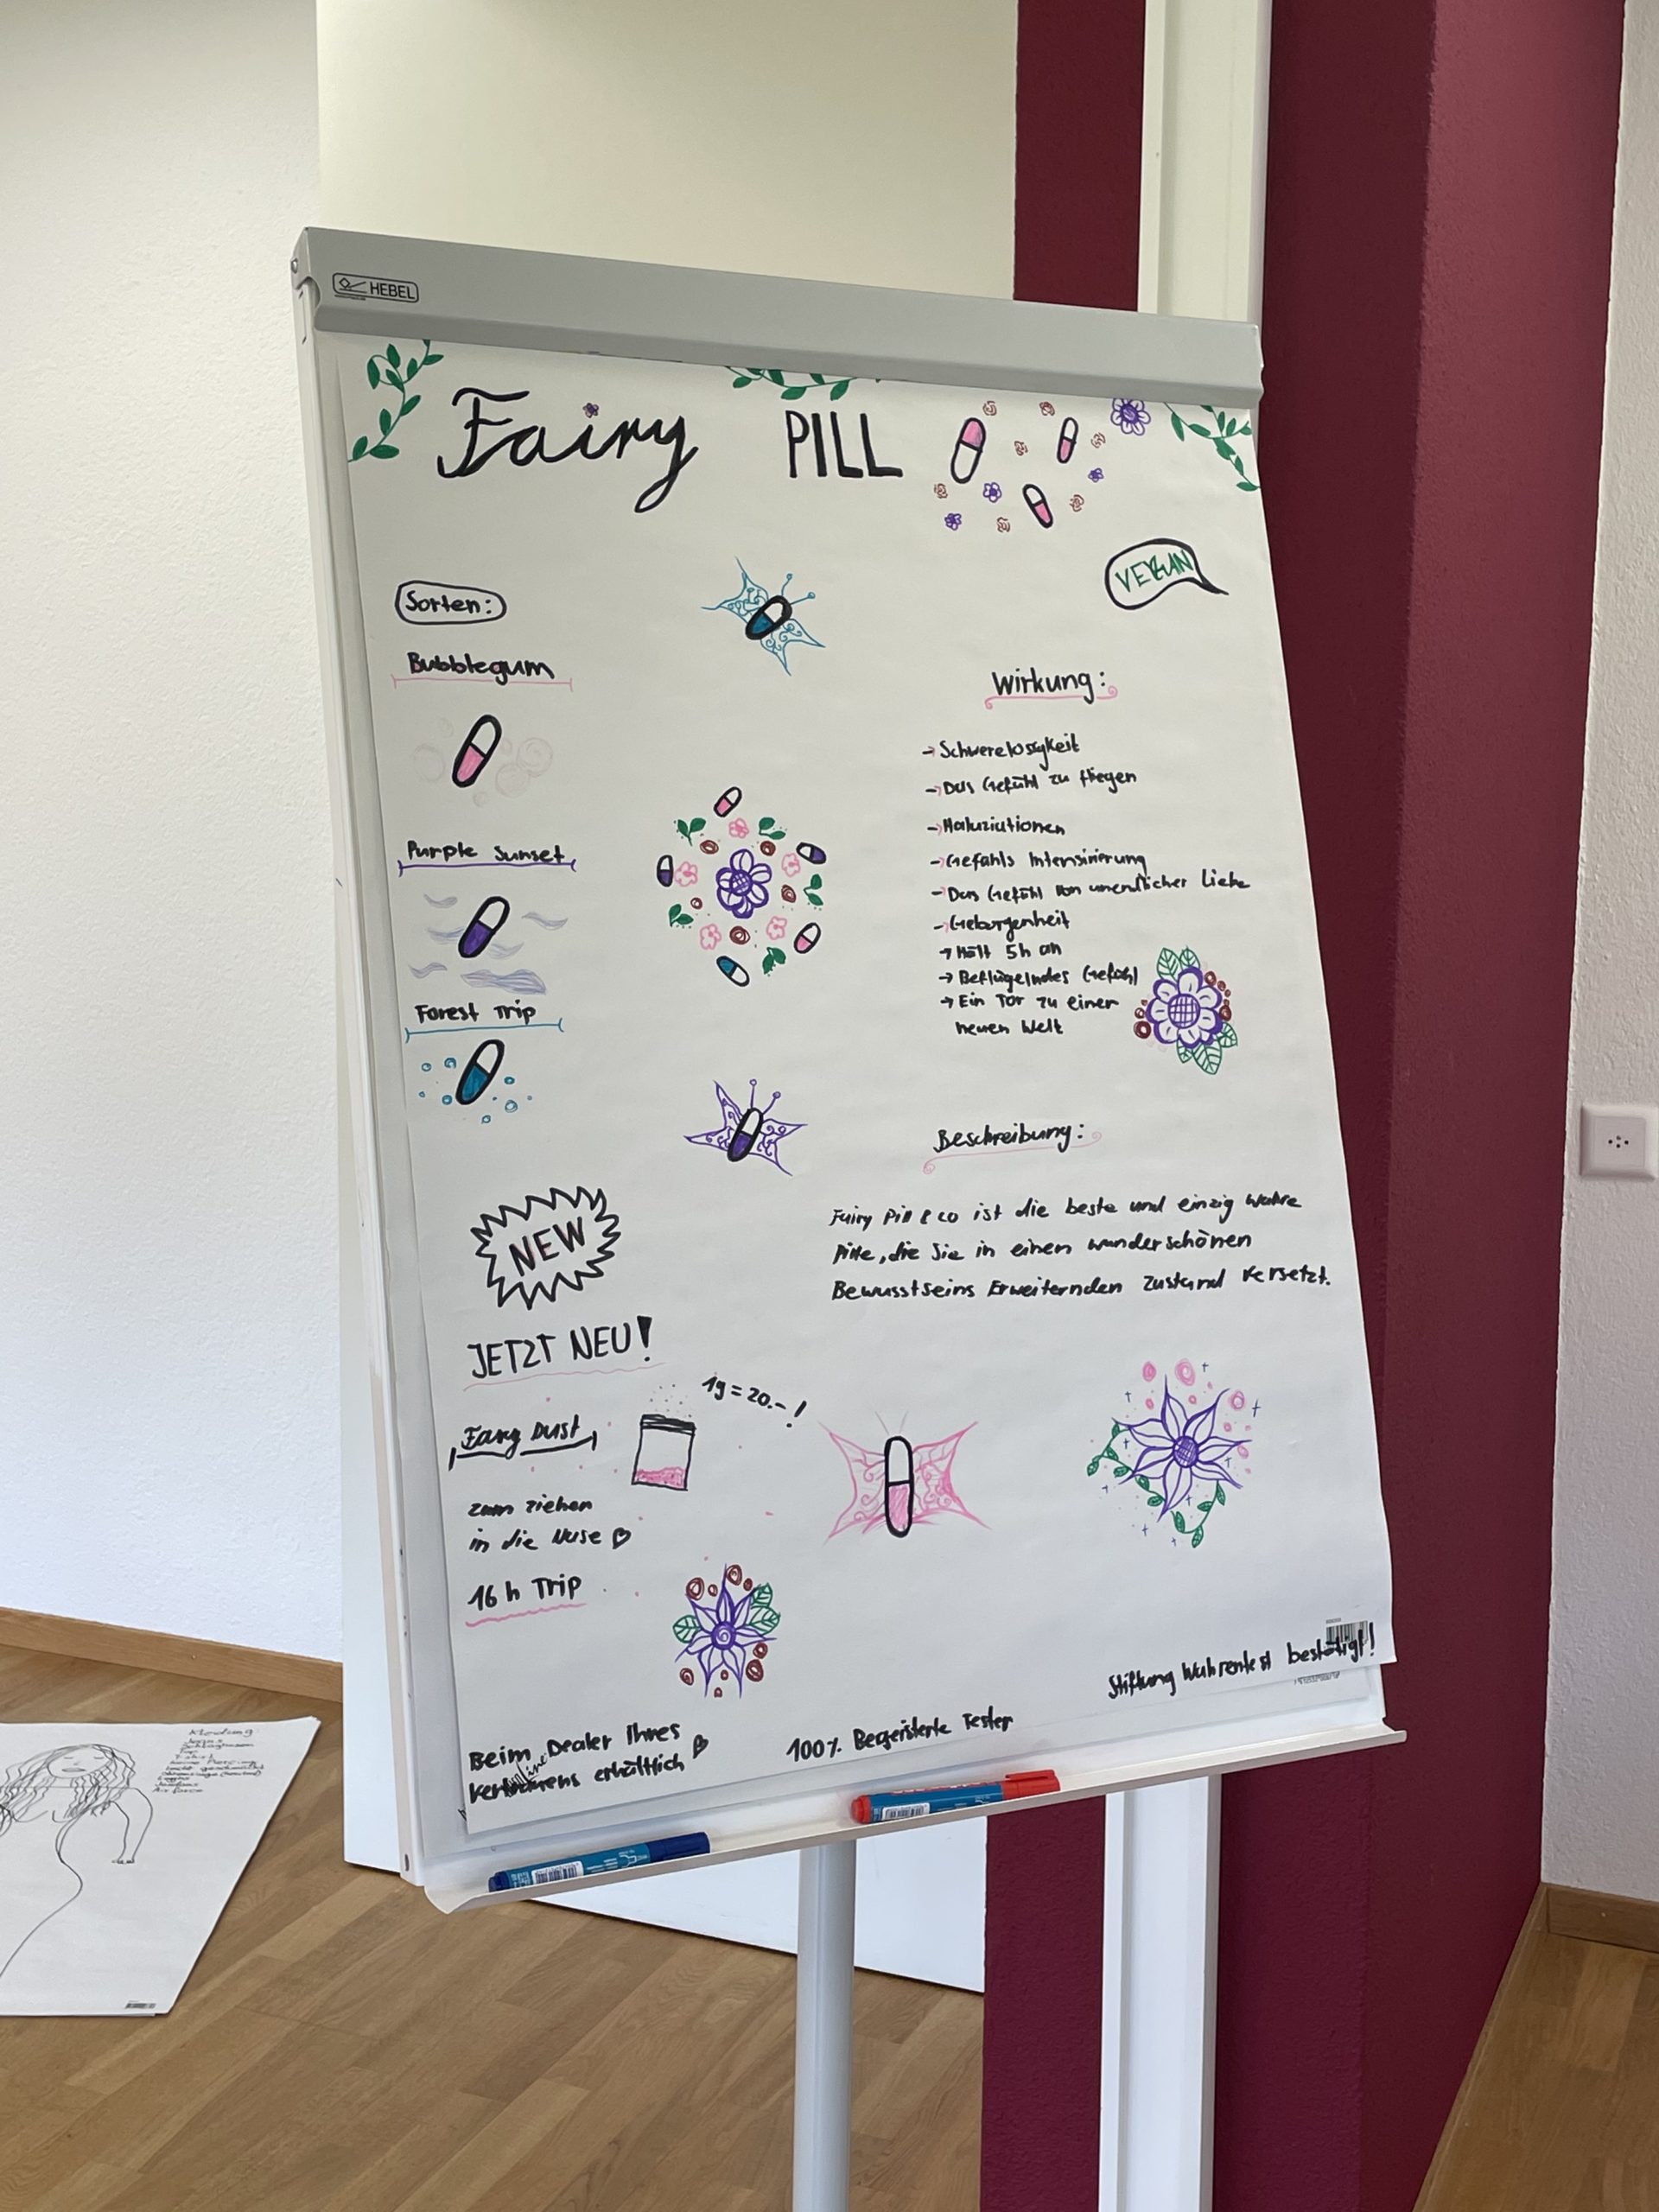 HEBEL
Fairy PILL
VEGAN
Sorten:
Bubblegum
Purple Sunset
Forest Trip
Wirkung:
→ Schwerelossgkeit
→ Das Gefühl zu fliegen
→ Haluziutionen
→ Gefühls Intensivierung
→ Das Gefühl von unendlicher Liebe
→ Geborgenheit
→ Hält 5h an
→ Beflügelndes Gefühl
→ Ein Tor zu einer
neuen Welt
Beschreibung:
Fairy Pill & co ist die beste und einzig wahre
Pille, die Sie in einen wunderschönen
Bewusstseins Erweiternden Zustand versetzt.
NEW
JETZT NEU!
Fairy Dust
1g = 20.- !
zum ziehen
in die Nase
16 h Trip
Beim Dealer Ihres
erhältlich
100% Begeisterte Tester
Stiftung Wahrentest bestätigt!
Kleidung
T-shirt